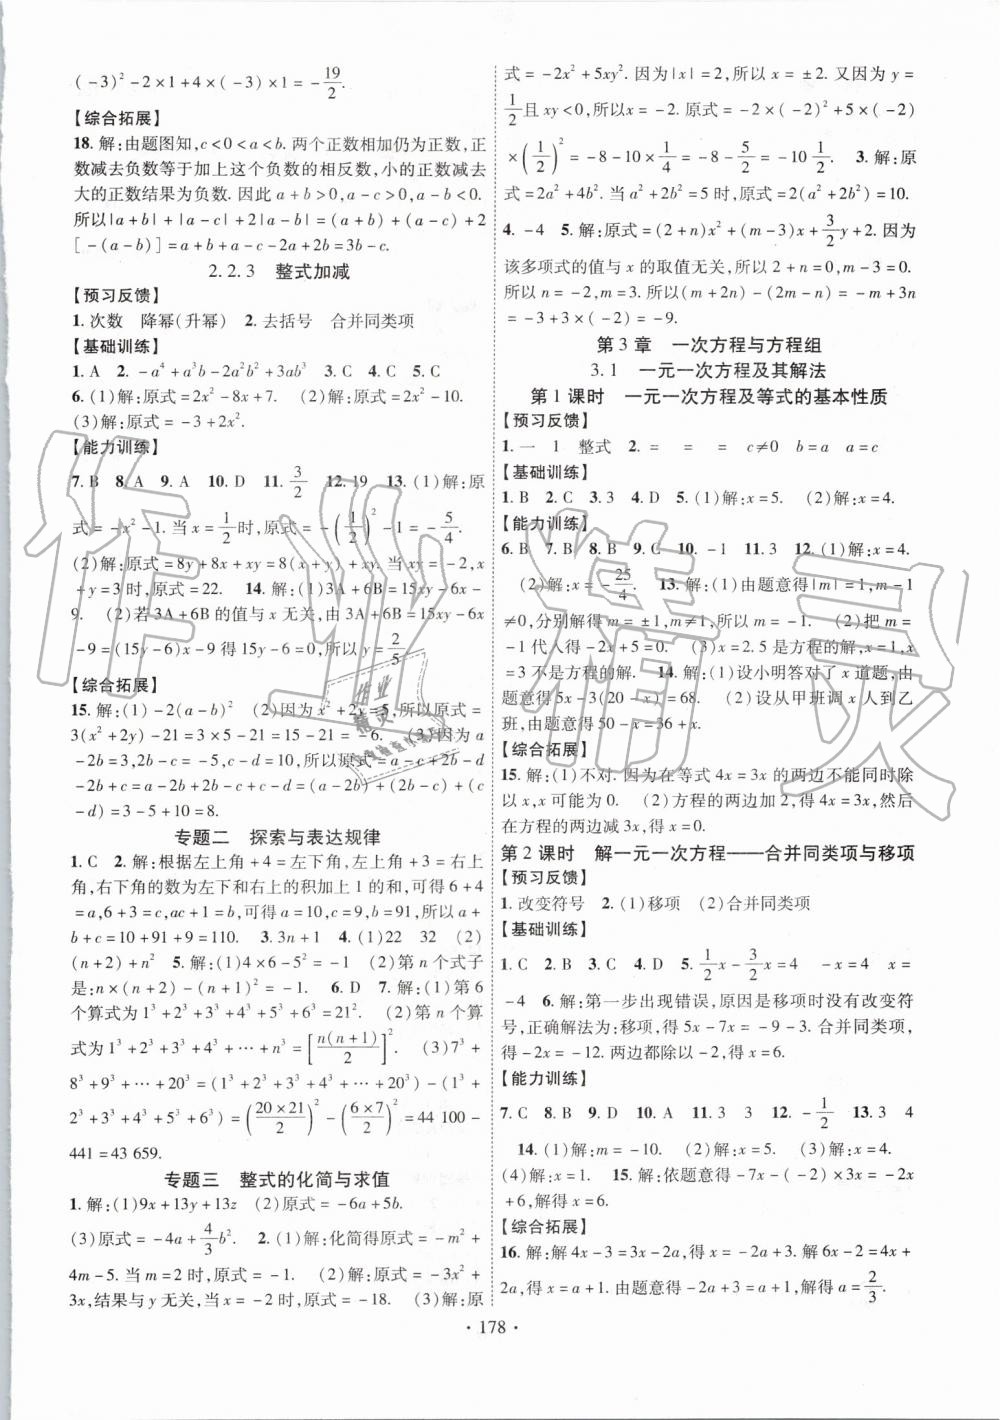 (-3)²-2×1+4×(-3)×1=-19/2.
【综合拓展】
18. 解:由题图知,c<0<a<b. 两个正数相加仍为正数,正
数减去负数等于加上这个负数的相反数,小的正数减去
大的正数结果为负数. 因此 a+b>0,a-c>0,a-b<0.
所以|a+b|+|a-c|+2|a-b|=(a+b)+(a-c)+2
[-(a-b)]=a+b+a-c-2a+2b=3b-c.
2.2.3 整式加减
【预习反馈】
1. 次数 降幂(升幂) 2. 去括号 合并同类项
【基础训练】
1. A 2. -a⁴+a³b-2a²b²+3ab³ 3. B 4. C 5. C
6. (1)解:原式=2x²-8x+7. (2)解:原式=2x²-10.
(3)解:原式=-3+2x².
【能力训练】
7. B 8. A 9. A 10. D 11. 3/2 12. 19 13. (1)解:原
式=-x²-1. 当 x=1/2时,原式=-(1/2)²-1=-5/4.
(2)解:原式=8y+8x+xy=8(x+y)+xy. 当 xy=-2,x+
y=3 时,原式=22. 14. 解:(1)3A+6B=15xy-6x-
9. (2)若 3A+6B 的值与 x 无关,由 3A+6B=15xy-6x
-9=(15y-6)x-9 得 15y-6=0,所以 y=2/5.
【综合拓展】
15. 解:(1)-2(a-b)² (2)因为 x²+2y=5,所以原式=
3(x²+2y)-21=3×5-21=15-21=-6. (3)因为 a
-2b=3,2b-c=-5,c-d=10,所以原式=a-c+2b-d
-2b+c=a-2b+2b-c+c-d=(a-2b)+(2b-c)+(c
-d)=3-5+10=8.
专题二 探索与表达规律
1. C 2. 解:根据左上角+4=左下角,左上角+3=右上
角,右下角的数为左下和右上的积加上 1 的和,可得 6+4
=a,6+3=c,ac+1=b,可得 a=10,c=9,b=91,所以 a+
b+c=10+91+9=110. 3. 3n+1 4. (1)22 32 (2)
(n+2)+n² 5. 解:(1)4×6-5²=-1 (2)第 n 个式子
是:n×(n+2)-(n+1)²=-1 6. D 7. 解:(1)第 6
个算式为 1³+2³+3³+4³+5³+6³=21². (2)第 n 个算
式为 1³+2³+3³+4³+…+n³=[n(n+1)/2]². (3)7³+
8³+9³+…+20³=(1³+2³+3³+4³+…+20³)-(1³+
2³+3³+4³+5³+6³)=(20×21/2)²-(6×7/2)²=44 100-
441=43 659.
专题三 整式的化简与求值
1. 解:(1)9x+13y+13z (2)原式=-6a+5b.
(3)原式=-4a+4/3b². 2. (1)解:化简得原式=-m²+
4m-5. 当 m=2 时,原式=-1. (2)解:原式=-3x²+
3x,结果与 y 无关,当 x=-2 时,原式=-18. (3)解:原
式=-2x²+5xy². 因为|x|=2,所以 x=±2. 又因为 y=
1/2且 xy<0,所以x=-2. 原式=-2×(-2)²+5×(-2)
×(1/2)²=-8-10×1/4=-8-5/2=-10 1/2. 3. 解:原
式=2a²+4b². 当 a²+2b²=5 时,原式=2(a²+2b²)=10.
4. -4 5. 解:原式=(2+n)x²+(m-3)x+3/2y+2. 因为
该多项式的值与 x 的取值无关,所以 2+n=0,m-3=0.
所以 n=-2,m=3. 所以(m+2n)-(2m-n)=-m+3n
=-3+3×(-2)=-9.
第 3 章 一次方程与方程组
3.1 一元一次方程及其解法
第 1 课时 一元一次方程及等式的基本性质
【预习反馈】
1. 一 1 整式 2. = = = c≠0 b=a a=c
【基础训练】
1. B 2. C 3. 3 4. D 5. (1)解:x=5. (2)解:x=4.
【能力训练】
6. B 7. B 8. B 9. C 10. -1 11. 3 12. (1)解:x=4.
(2)解:x=-25/4. 13. 解:(1)由题意得|m|=1,m-1
≠0,分别解得 m=±1,m≠1,所以 m=-1. (2)把 m=
-1 代入得-2x+5=0. (3)x=2.5 是方程的解,x=1,x
=3 不是方程的解. 14. 解:(1)设小明答对了 x 道题,由
题意得 5x-3(20-x)=68. (2)设从甲班调 x 人到乙
班,由题意得 50-x=36+x.
【综合拓展】
15. 解:(1)不对. 因为在等式 4x=3x 的两边不能同时除
以 x,x 可能为 0. (2)方程的两边加 2,得 4x=3x,然后
在方程的两边减 3x,得 x=0.
第 2 课时 解一元一次方程——合并同类项与移项
【预习反馈】
1. 改变符号 2. (1)移项 (2)合并同类项
【基础训练】
1. C 2. B 3. D 4. D 5. 1/2x-3/2x=4 -x=4 x=
-4 6. 解:第一步出现错误,原因是移项时没有改变符
号,正确解法为:移项,得 5x-7x=-9-3. 合并同类项,
得-2x=-12. 两边都除以-2,得 x=6.
【能力训练】
7. C 8. B 9. D 10. A 11. 3 3 12. -1/2 13. 3 4
14. (1)解:m=-10. (2)解:x=5. (3)解:x=4.
(4)解:x=1. 15. 解:依题意得-7x-(-2)×2x=
-18,解得 x=6.
【综合拓展】
16. 解:解 4x-3=3x-2a,得 x=3-2a. 解 6x-2=4x+
2a,得 x=a+1. 由题意得 3-2a=a+1,解得 a=2/3.
· 178 ·
作业精灵
作业
精灵